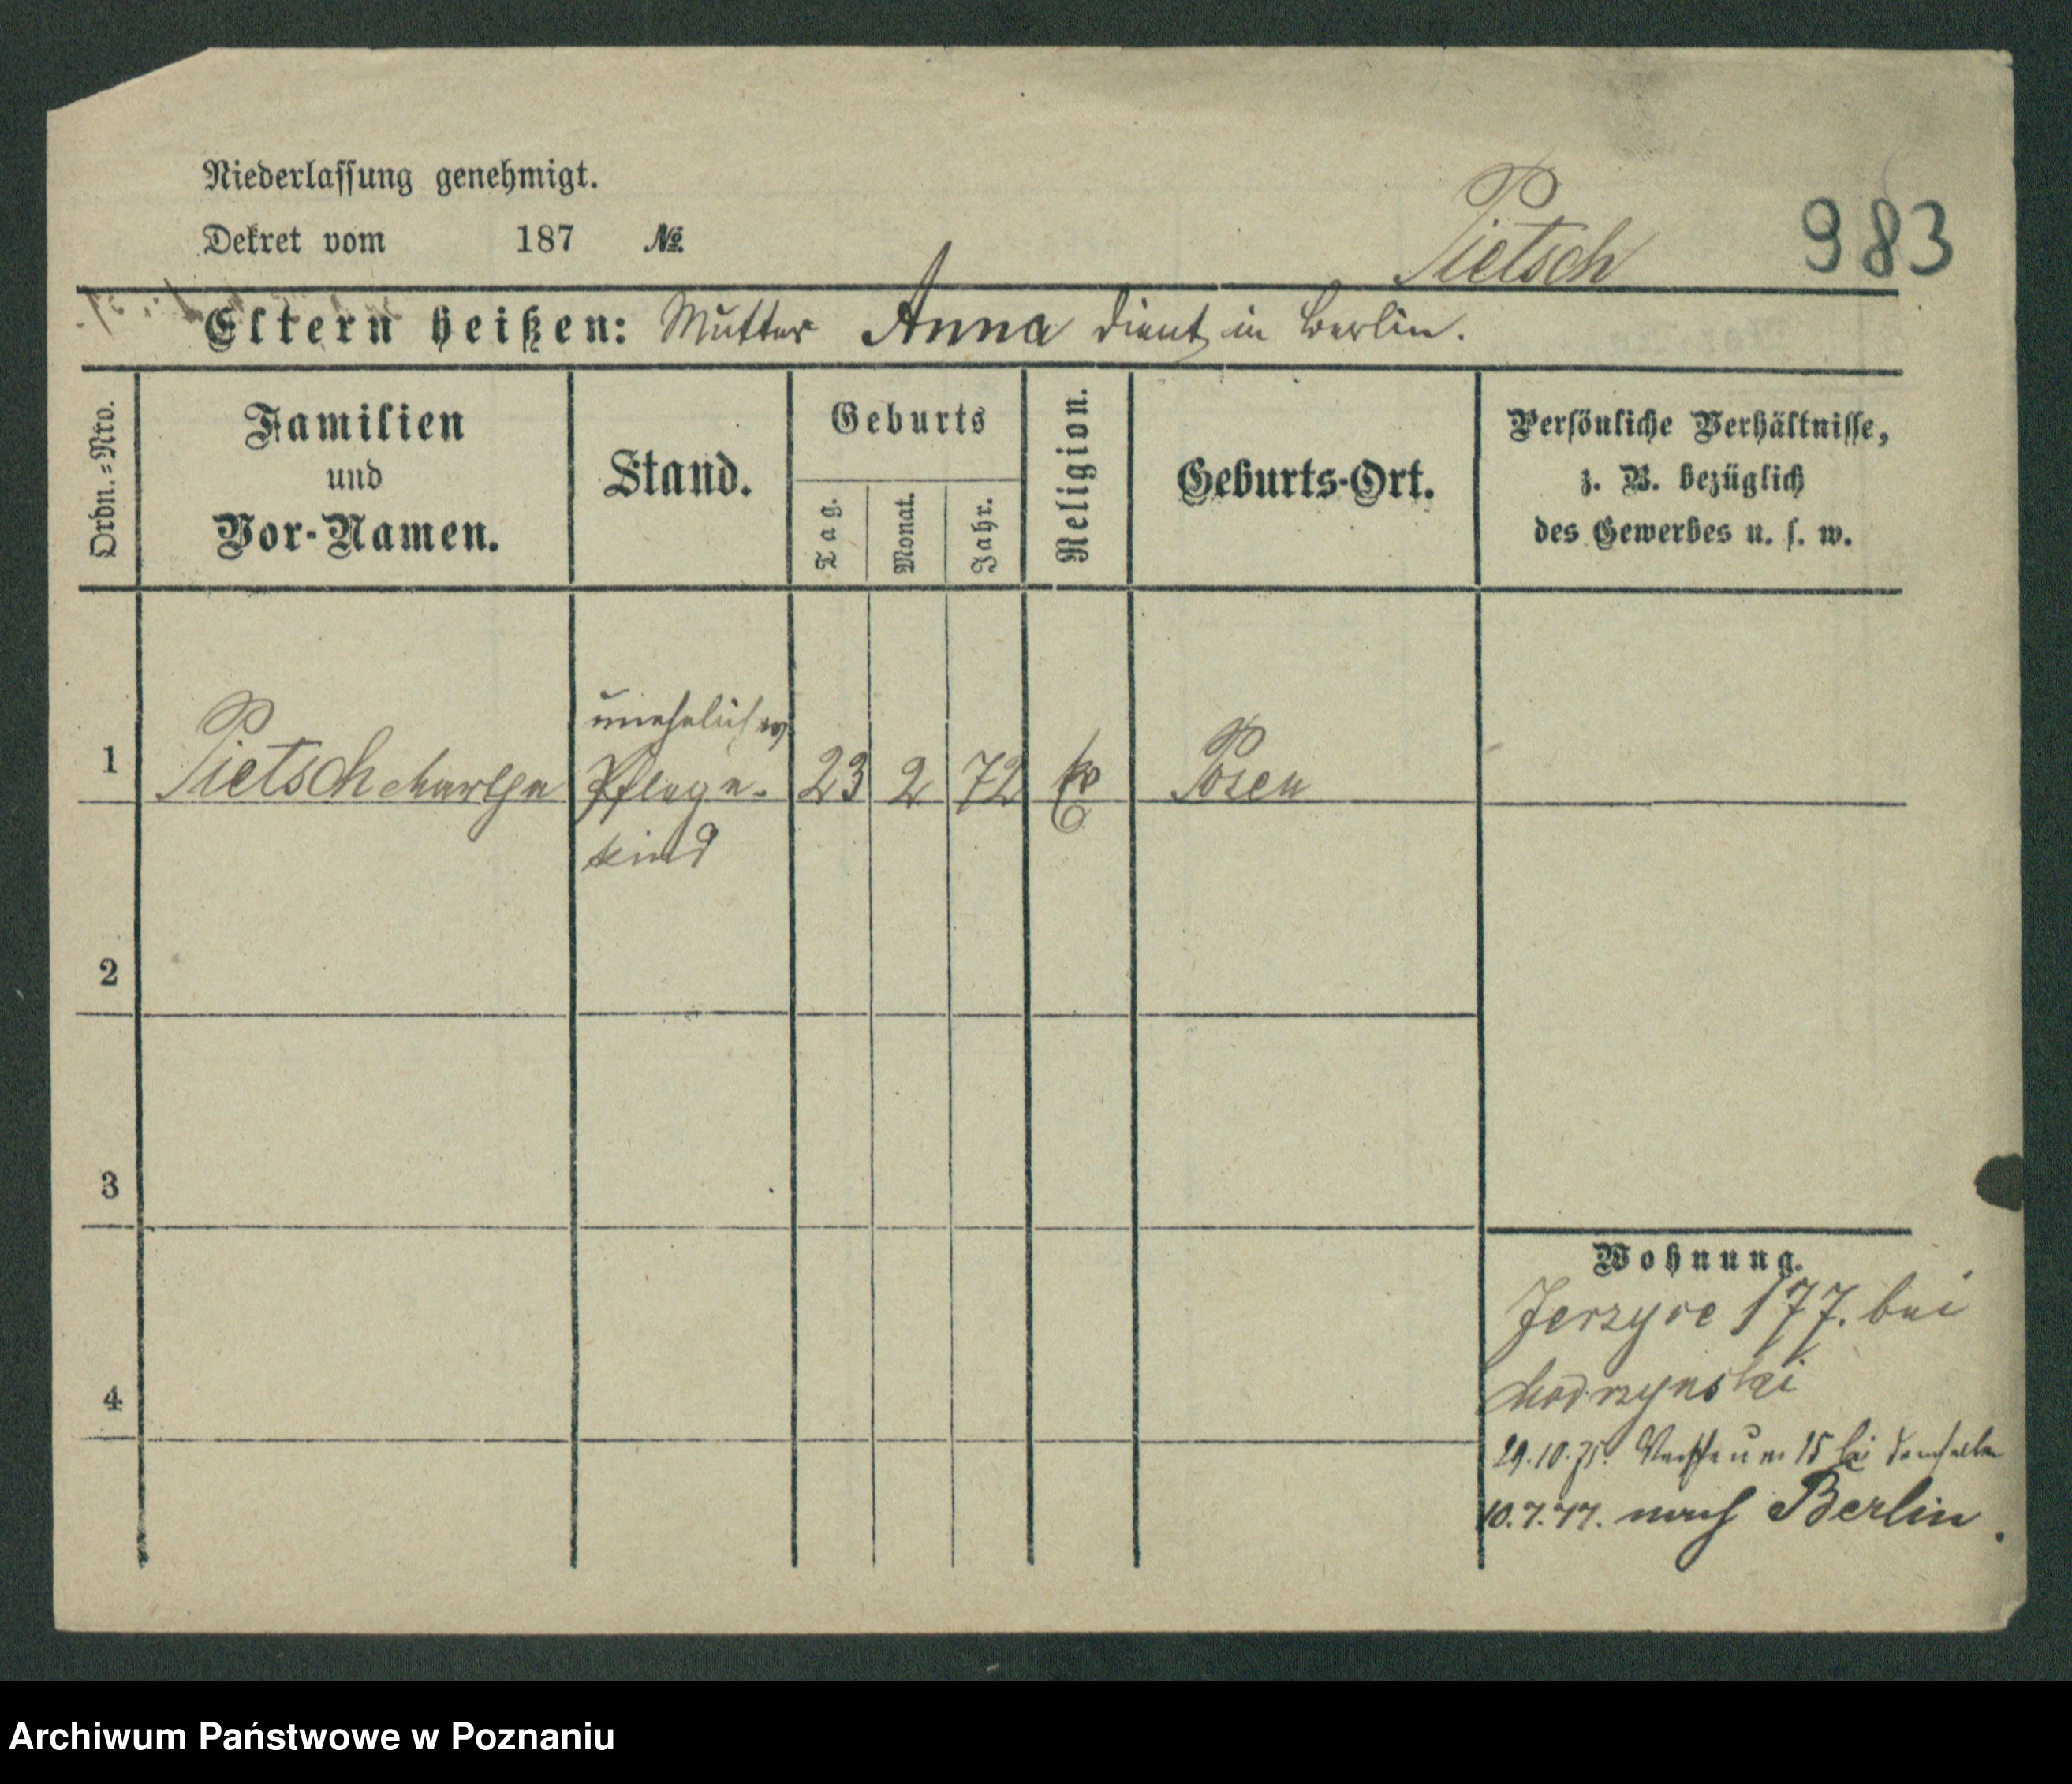 Niederlassung genehmigt.
Dekret vom 187 №
Pietsch 983
Eltern heißen: Mutter Anna dient in Berlin.
Ordn.=Nro.
Familien
und
Vor-Namen.
Stand.
Geburts
Tag.
Monat.
Jahr.
Religion.
Geburts-Ort.
Persönliche Verhältnisse,
z. B. bezüglich
des Gewerbes u. s. w.
uneheliches
1 Pietsch Pflege- 23 2 72 Posen
kind
2
3
4
Wohnung.
Jerzyce 177. bei
Modrzynski
29.10.75. 15 bei demselben
10.7.77. nach Berlin.
Archiwum Państwowe w Poznaniu